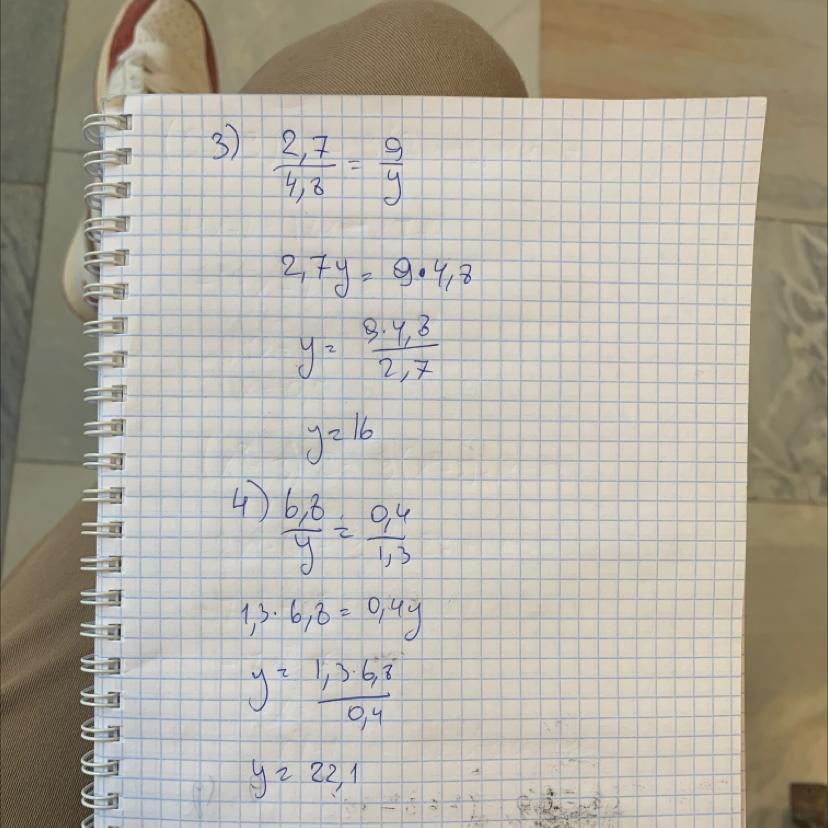 3) 2,7/4,8 = 9/y
2,7y = 9·4,8
y = 9·4,8/2,7
y = 16
4) 6,8/y = 0,4/1,3
1,3·6,8 = 0,4y
y = 1,3·6,8/0,4
y = 22,1